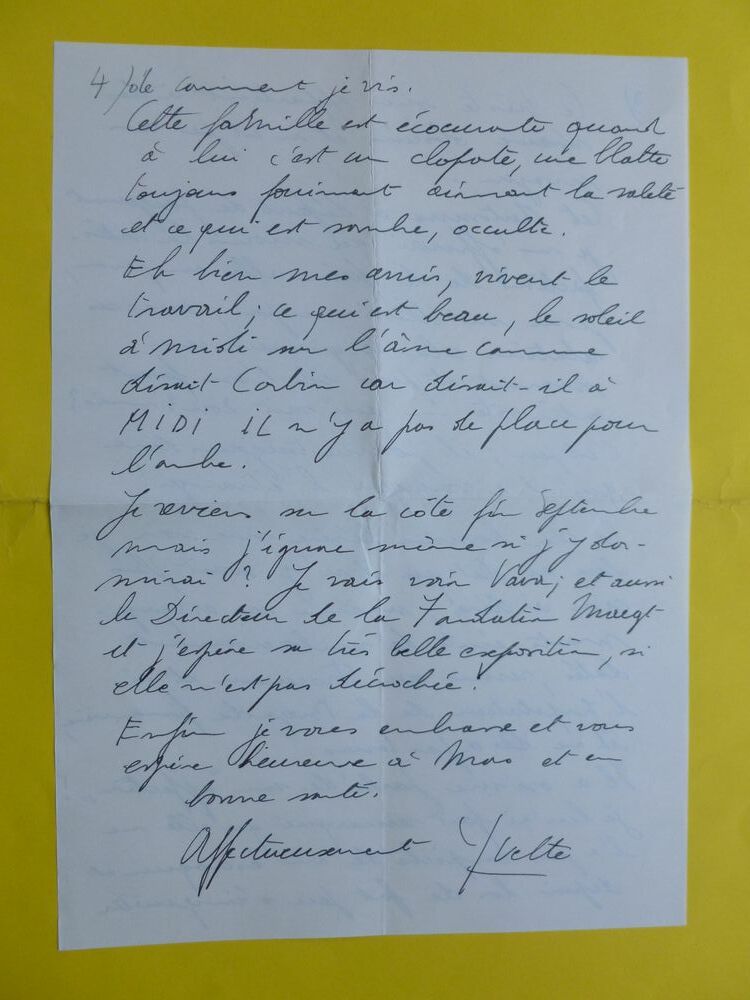 4/ de comment je vis.
Cette famille est écoeurante quand
à lui c'est un cloporte, une blatte
toujours fouinant aimant la saleté
et ce qui est sombre, occulte.
Eh bien mes amis, vivent le
travail; ce qui est beau, le soleil
à midi sur l'âme comme
disait Corbin car disait-il à
MIDI IL n'y a pas de place pour
l'ombre.
Je reviens sur la côte fin Septembre
mais j'ignore même si j'y dor-
mirai ? Je vais voir Vava; et aussi
le Directeur de la Fondation Maegt
et j'espère sa très belle exposition, si
elle n'est pas décrochée.
Enfin je vous embrasse et vous
espère heureux à Mas et en
bonne santé.
Affectueusement Yvette